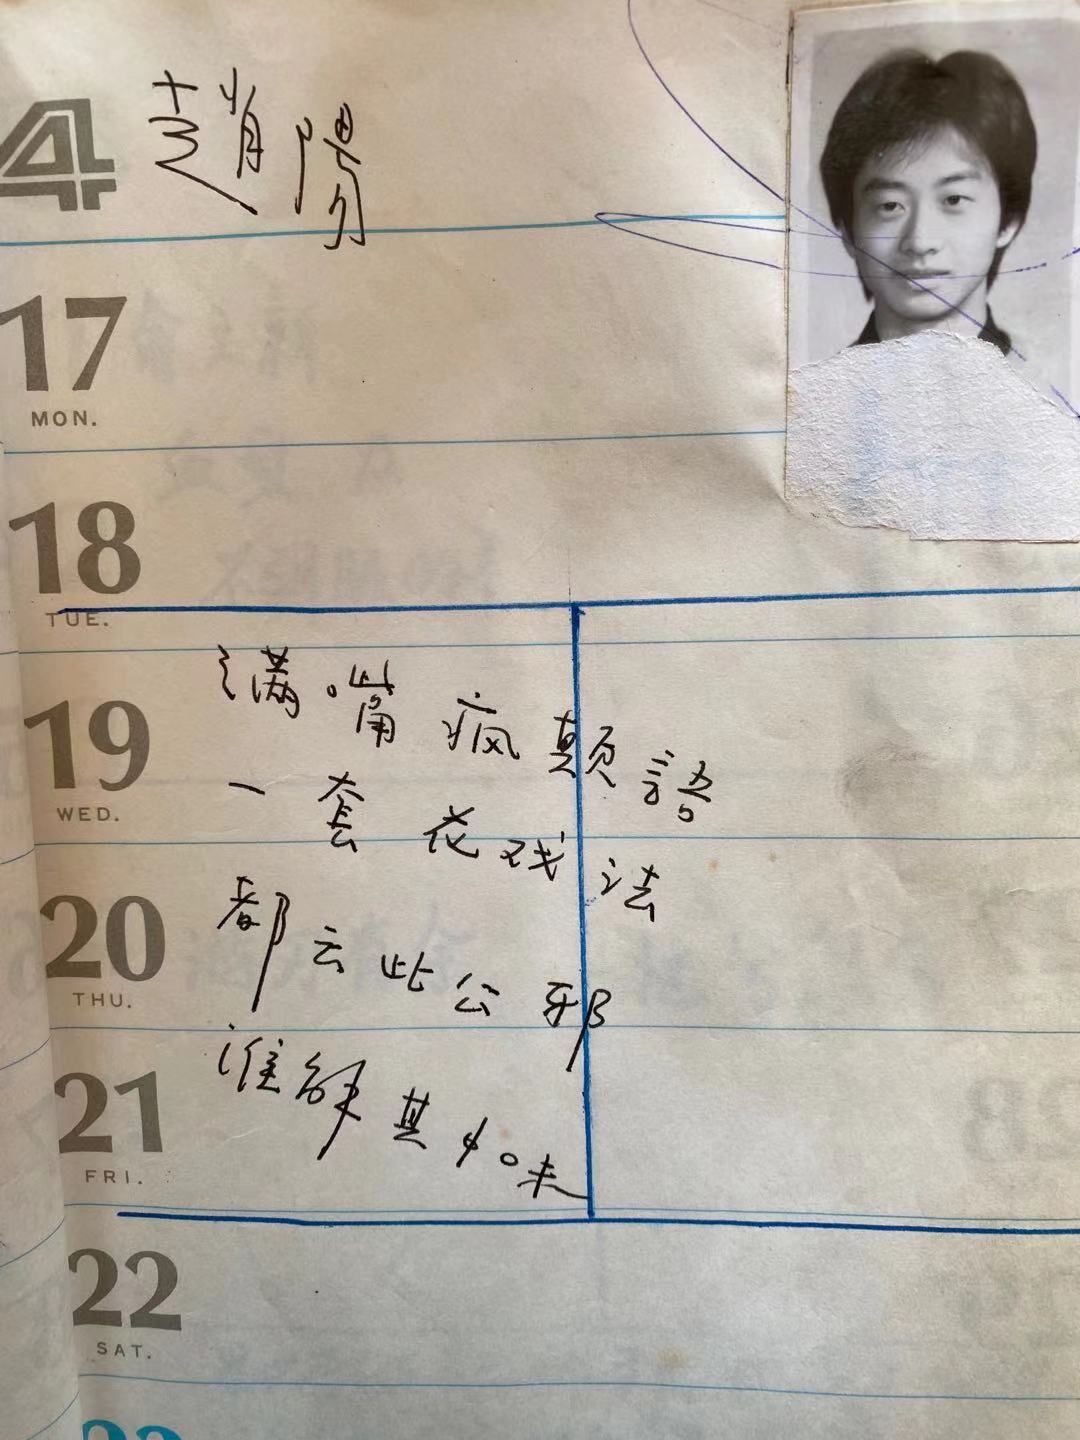 4 趙陽
17
MON.
18
TUE.
满嘴疯颠語
19
WED.
一套花戏法
20
THU.
都云此公邪
21
FRI.
谁解其中味
22
SAT.
23